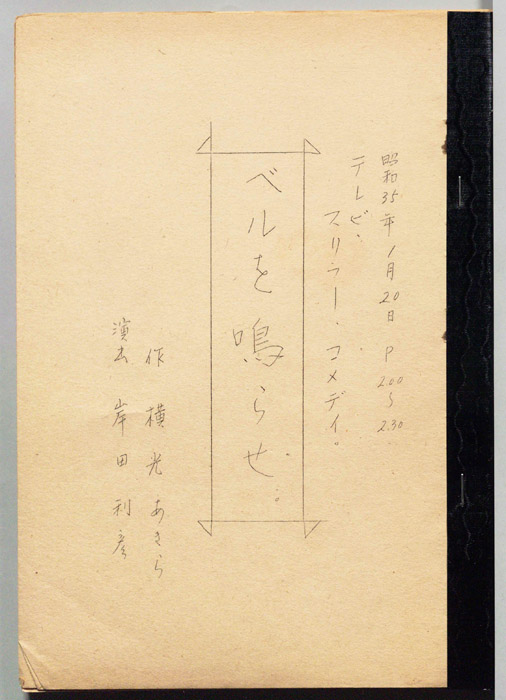 昭和35年1月20日 P 2.00〜2.30
テレビ・
スリラー・コメディ。
ベルを鳴らせ…
作 横光あきら
演出 岸田利彦